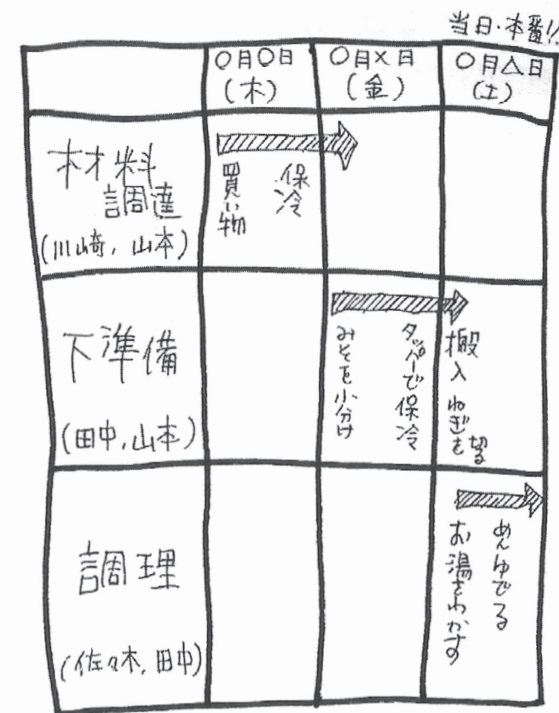 当日・本番!!
〇月〇日
(木)
〇月×日
(金)
〇月△日
(土)
材料
調達
(川崎, 山本)
買い物
保冷
下準備
(田中, 山本)
みそを小分け
タッパーで保冷
搬入
ねぎを切る
調理
(佐々木, 田中)
お湯をわかす
めんゆでる